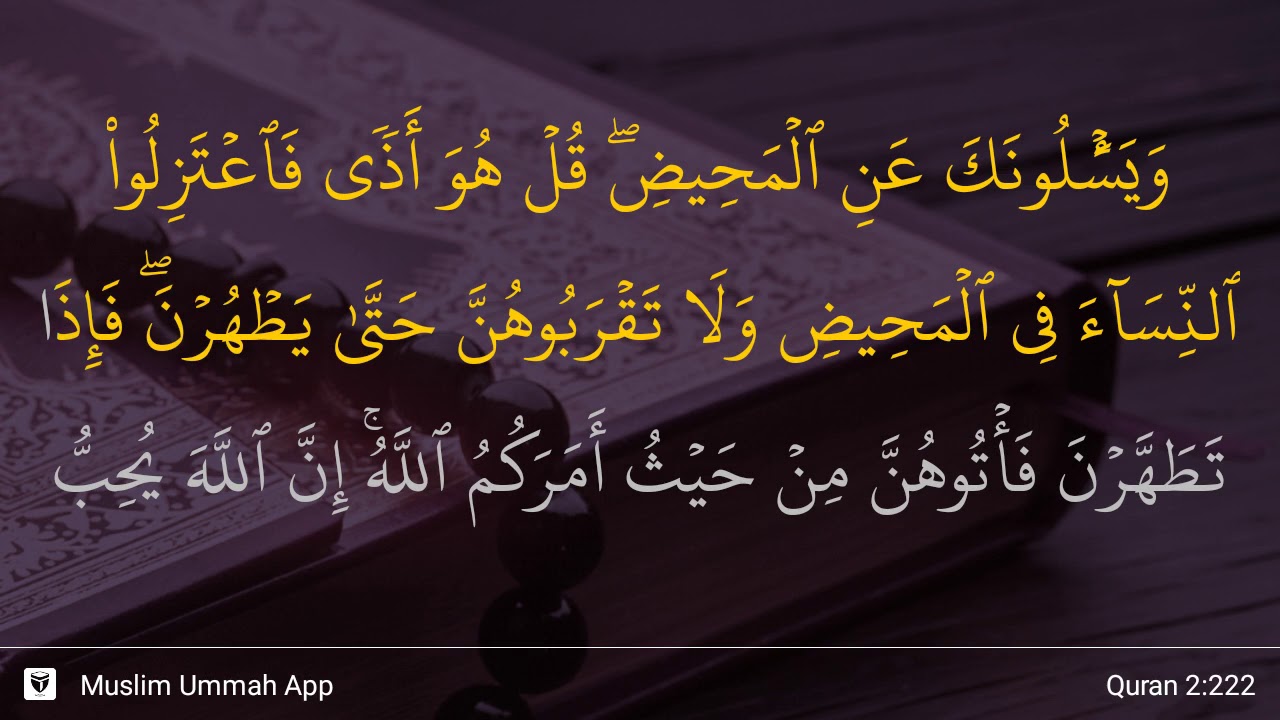 وَيَسۡـَٔلُونَكَ عَنِ ٱلۡمَحِيضِۖ قُلۡ هُوَ أَذٗى فَٱعۡتَزِلُواْ
ٱلنِّسَآءَ فِي ٱلۡمَحِيضِ وَلَا تَقۡرَبُوهُنَّ حَتَّىٰ يَطۡهُرۡنَۖ فَإِذَا
تَطَهَّرۡنَ فَأۡتُوهُنَّ مِنۡ حَيۡثُ أَمَرَكُمُ ٱللَّهُۚ إِنَّ ٱللَّهَ يُحِبُّ
Muslim Ummah App
Quran 2:222